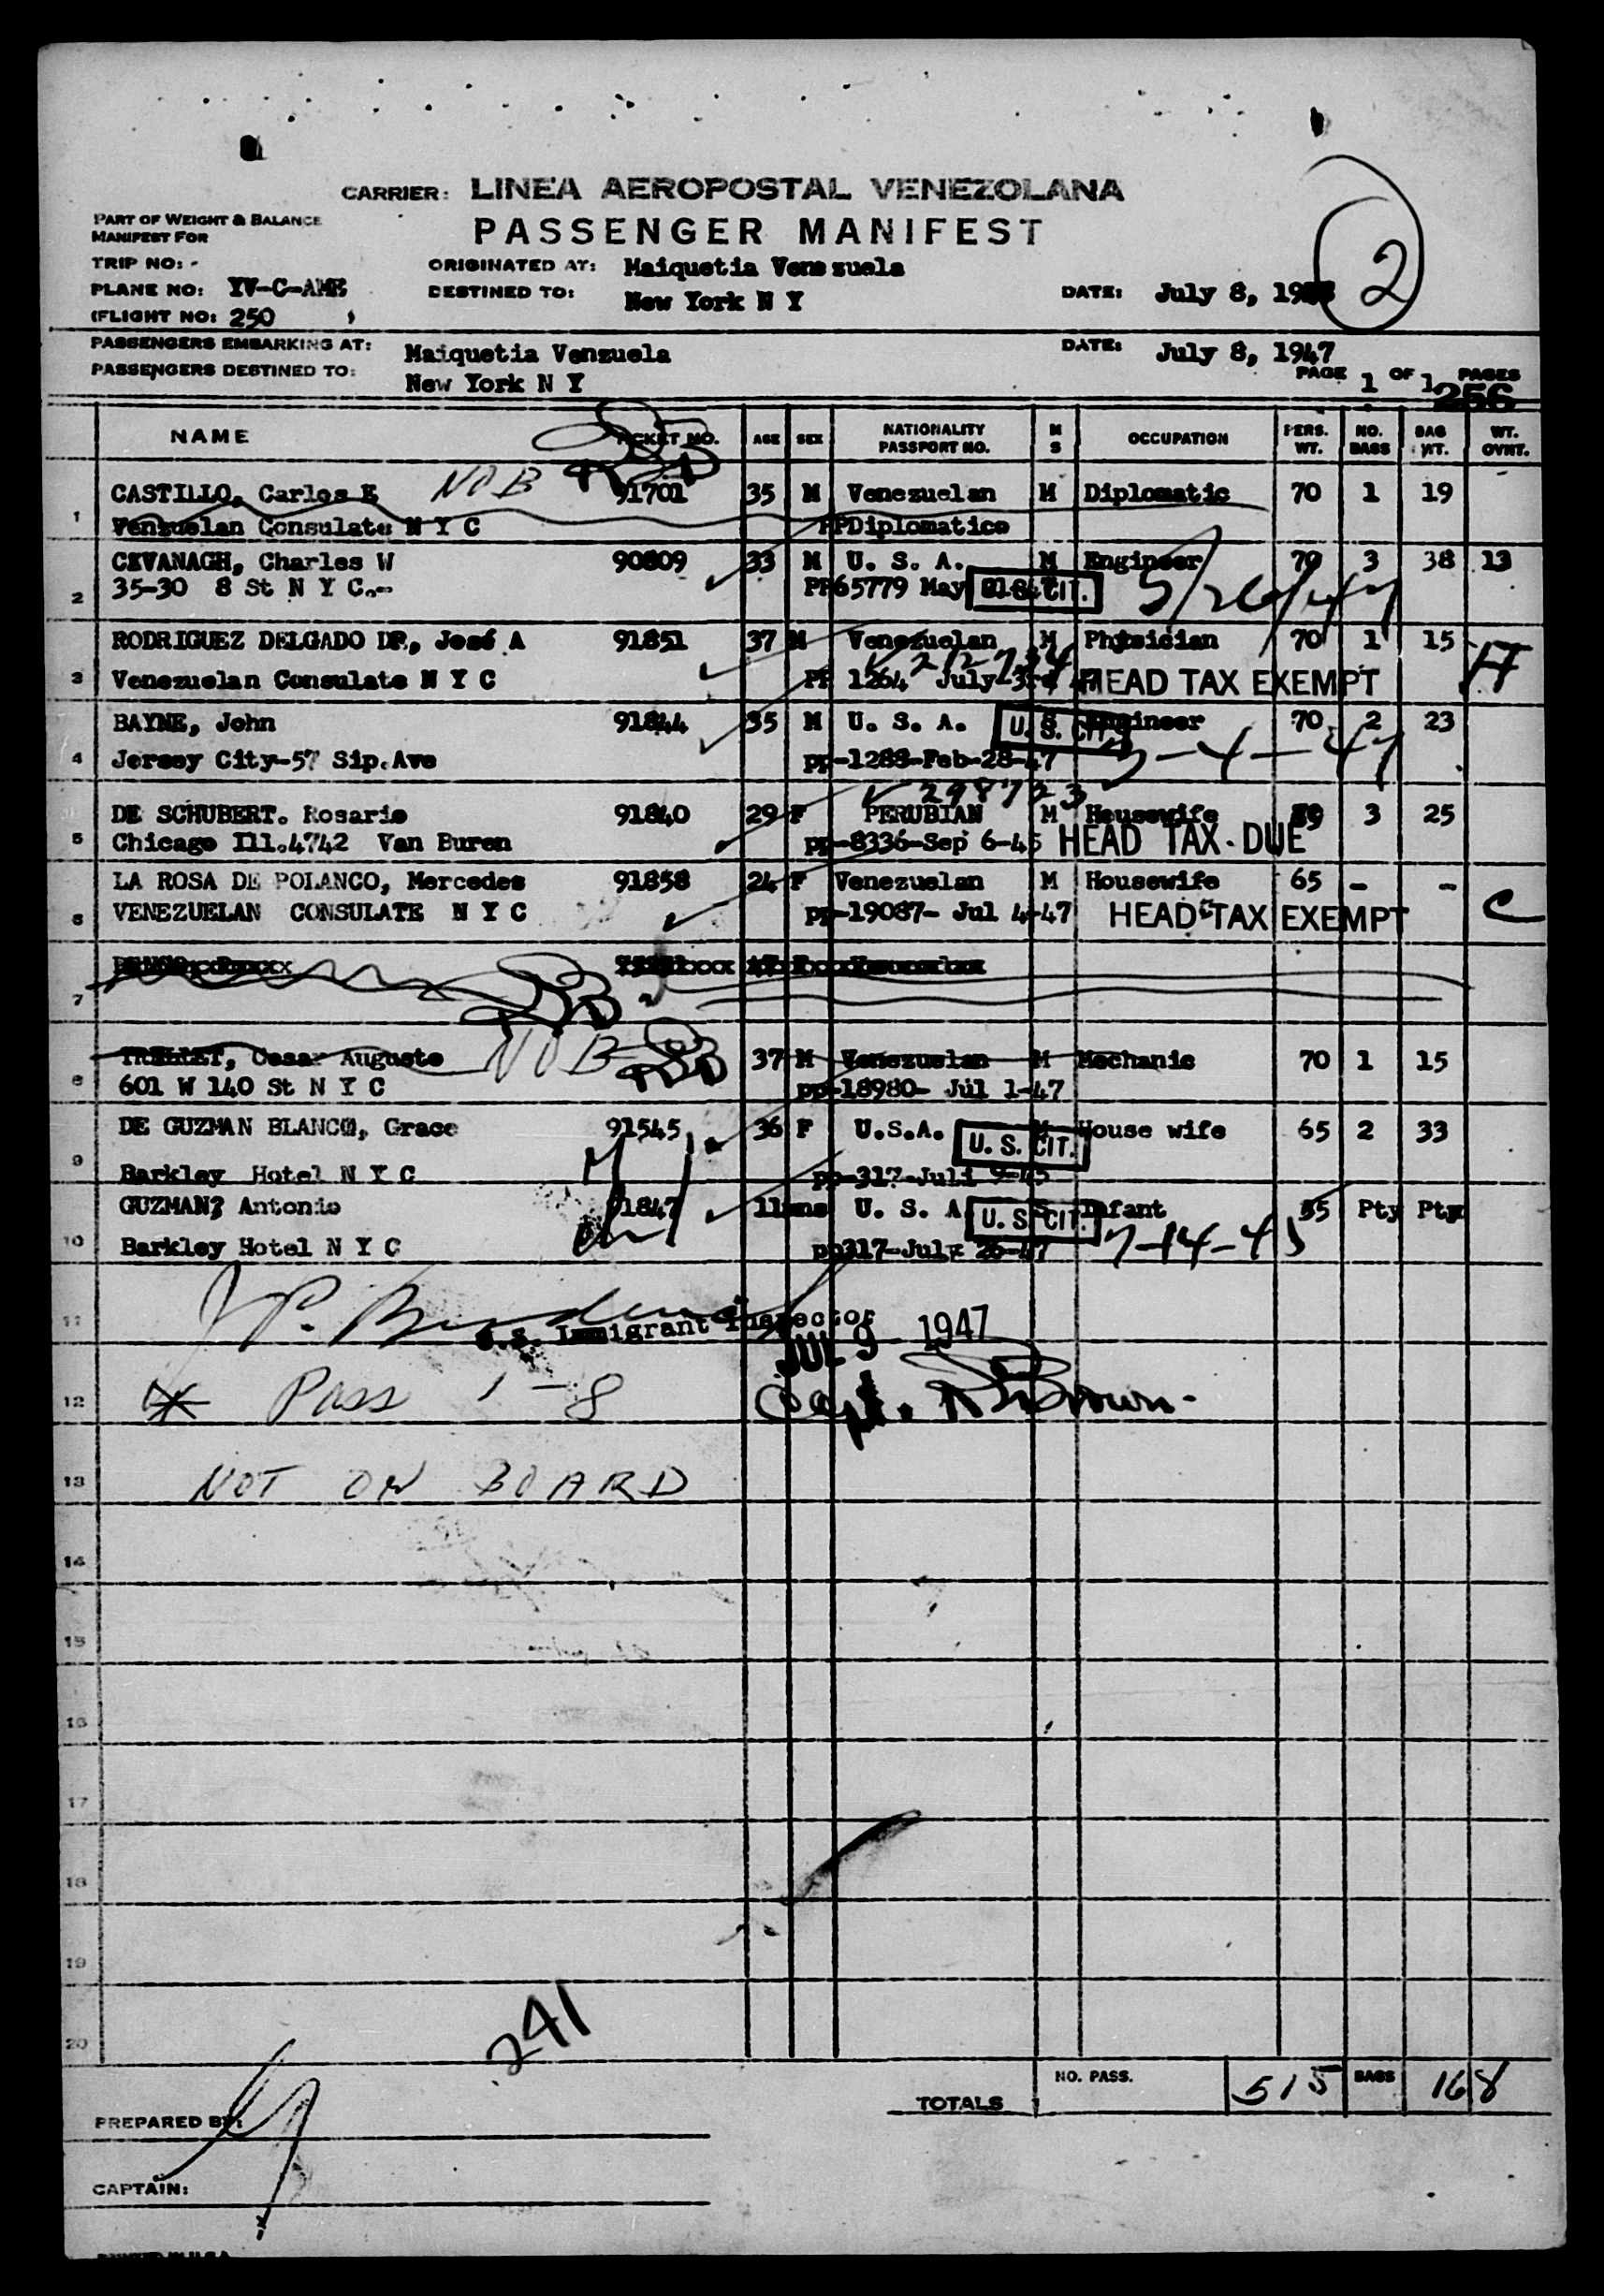 CARRIER: LINEA AEROPOSTAL VENEZOLANA
PASSENGER MANIFEST
PART OF WEIGHT & BALANCE
MANIFEST FOR
TRIP NO: -
PLANE NO: YV-C-AME
(FLIGHT NO: 250 )
ORIGINATED AT: Maiquetia Venezuela
DESTINED TO: New York N Y
DATE: July 8,
2
PASSENGERS EMBARKING AT: Maiquetia Venzuela
PASSENGERS DESTINED TO: New York N Y
DATE: July 8, 1947
PAGE 1 OF 1 PAGES
256
NAME TICKET NO. AGE SEX NATIONALITY PASSPORT NO. M S OCCUPATION PERS. WT. NO. BAGS BAG WT. WT. OVHT.
1 CASTILLO, Carlos E NOB 91701 35 M Venezuelan M Diplomatic 70 1 19
Venzuelan Consulate N Y C PPDiplomatico
2 CEVANAGH, Charles W 90809 33 M U. S. A. M Engineer 70 3 38 13
35-30 8 St N Y C. PP65779 May CIT.
3 RODRIGUEZ DELGADO DR, José A 91851 37 M Venezuelan M Physician 70 1 15
Venezuelan Consulate N Y C PP 1264 July 3rd HEAD TAX EXEMPT
4 BAYNE, John 91844 35 M U. S. A. U. S. CIT. Engineer 70 2 23
Jersey City-57 Sip.Ave pp-1288-Feb-28-47 3-4-47
298723
5 DE SCHUBERT. Rosario 91840 29 F PERUBIAN M Housewife 3 25
Chicago Ill.4742 Van Buren pp-8336-Sep 6-45 HEAD TAX DUE
6 LA ROSA DE POLANCO, Mercedes 91858 24 F Venezuelan M Housewife 65 - -
VENEZUELAN CONSULATE N Y C pp-19087- Jul 4-47 HEAD TAX EXEMPT C
7
8 Cesar Augusto NOB 37 M Venezuelan M Mechanic 70 1 15
601 W 140 St N Y C pp-18980- Jul 1-47
9 DE GUZMAN BLANCO, Grace 91545 36 F U.S.A. M House wife 65 2 33
U. S. CIT.
Barkley Hotel N Y C pp-317-Juli 9-45
10 GUZMAN? Antonio 91847 11ms U. S. A S Infant Pty Pty
U. S. CIT.
Barkley Hotel N Y C pp317-July 26-47
11 U.S. Immigrant Inspector
JUL 9 1947
12 Pass 1-8 Capt. Brown
13 NOT ON BOARD
14
15
16
17
18
19
20
241
TOTALS NO. PASS. 515 BAGS 168
PREPARED BY:
CAPTAIN: